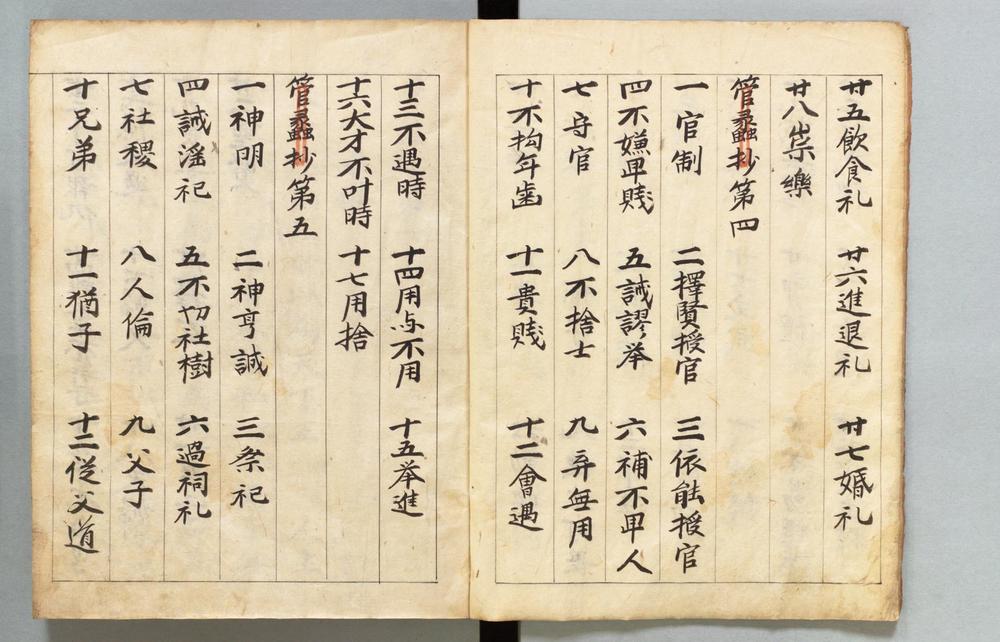 廿五飲食礼 廿六進退礼 廿七婚礼
廿八祟樂
管蠡抄第四
一官制 二擇賢授官 三依能授官
四不嫌卑賎 五誡謬举 六補不甲人
七守官 八不捨士 九弃無用
十不拘年歯 十一貴賎 十二會遇
十三不遇時 十四用与不用 十五举進
十六大才不叶時 十七用捨
管蠡抄第五
一神明 二神亨誠 三祭祀
四誡滛祀 五不切社樹 六過祠礼
七社稷 八人倫 九父子
十兄弟 十一猶子 十二従父道